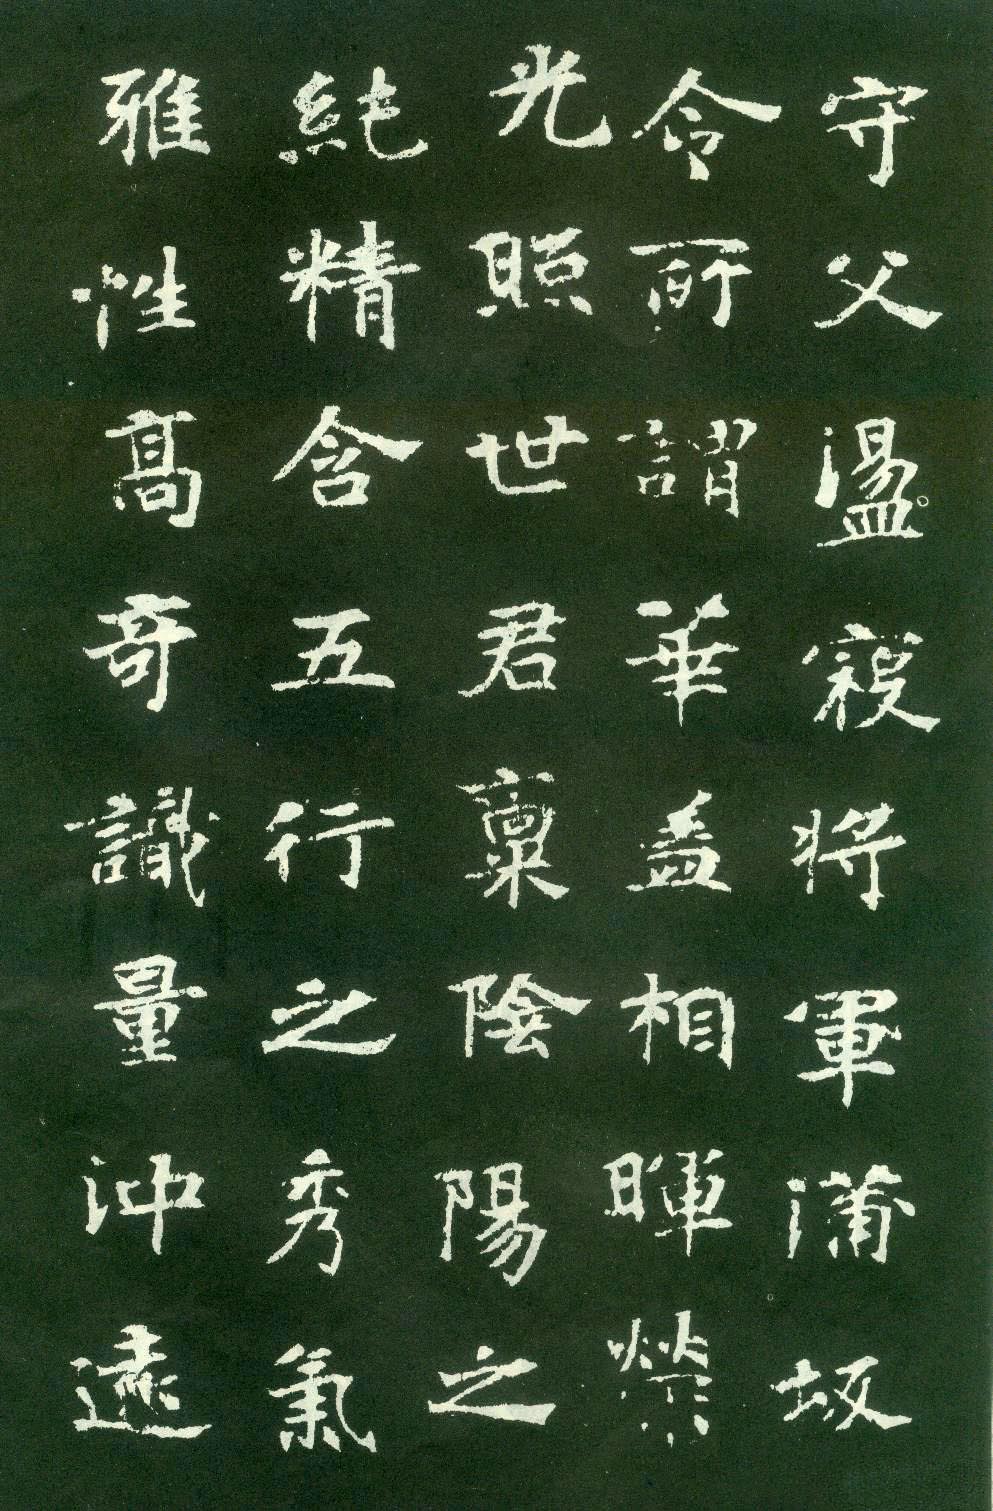 守父盪寇將軍蒲坂
令所謂華蓋相暉榮
光照世君稟陰陽之
純精含五行之秀氣
雅性高奇識量沖遠